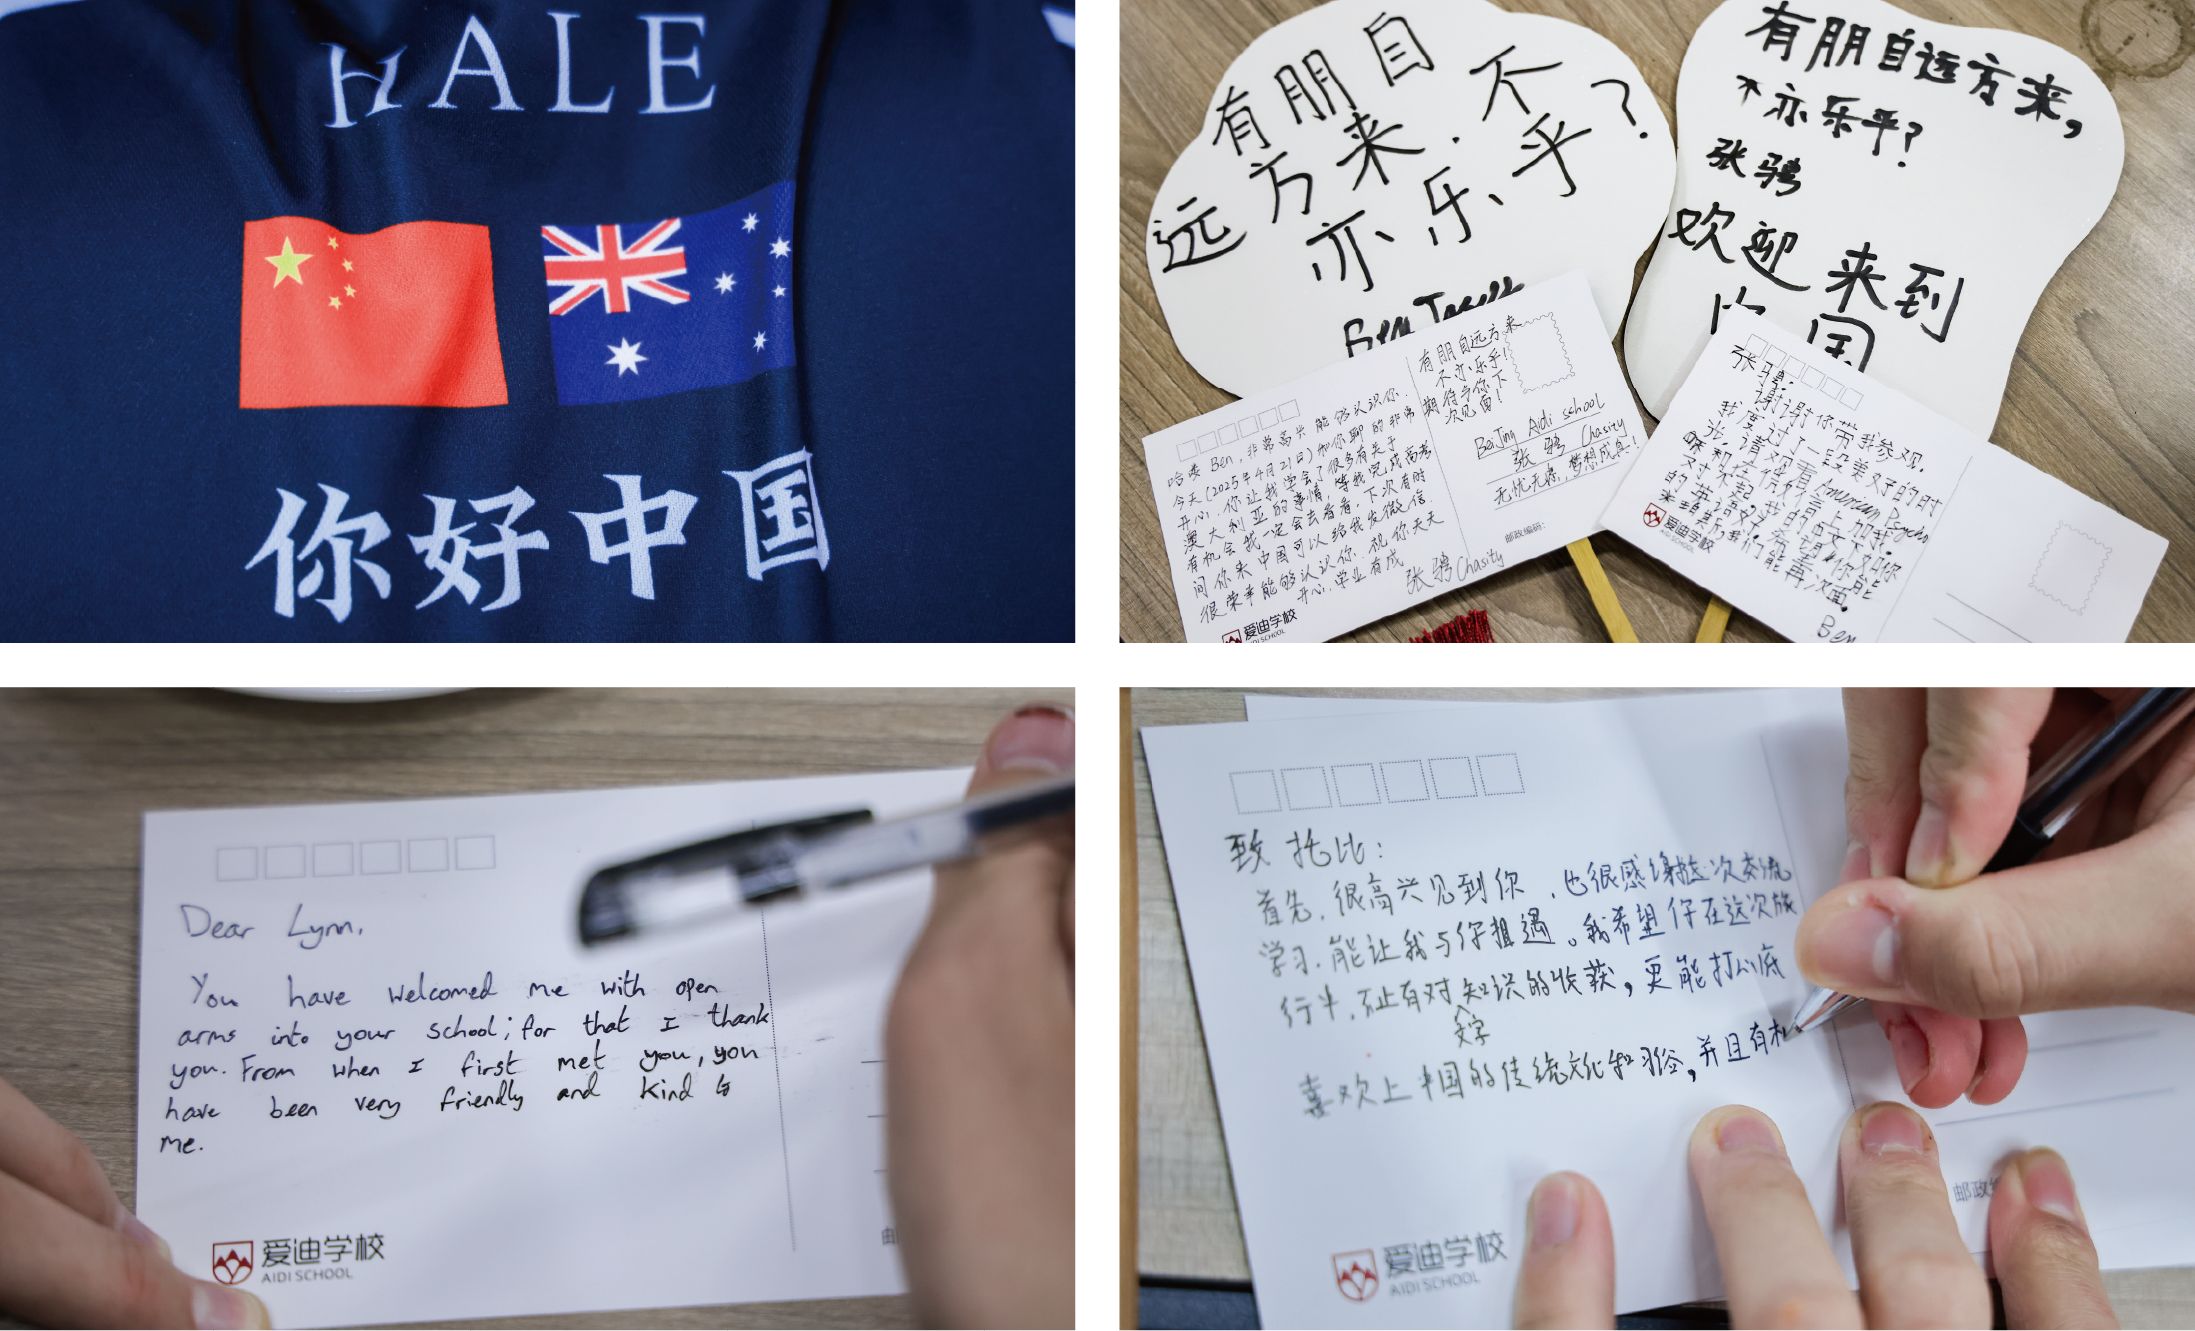 HALE
你好中国
有朋自
远方来,不
亦乐乎?
Ben
有朋自远方来,
不亦乐乎?
张骋
欢迎来到
国
哈喽 Ben,非常高兴能够认识你.
今天(2025年4月21日)和你聊的非常
开心,你让我学会了很多有关于
澳大利亚的事情,等我完成高考
有机会我一定会去看看.下次有时
间你来中国可以给我发微信.
很荣幸能够认识你.祝你天天
开心,学业有成
张骋 Chasity
爱迪学校
AIDI SCHOOL
有朋自远方来
不亦乐乎!
期待与你下
次见面!
BeiJing Aidi school
张骋 Chasity
无忧无虑,梦想成真!
邮政编码:
张骋,
谢谢你带我参观.
我度过了一段美好的时
光.请观看 American Psycho
和在微信上加我.
对不起,我的中文不如你
的英语好.希望你能
来 我们能再次
Ben
爱迪学校
AIDI SCHOOL
Dear Lynn,
You have welcomed me with open
arms into your school; for that I thank
you. From when I first met you, you
have been very friendly and kind to
me.
爱迪学校
AIDI SCHOOL
致托比:
首先,很高兴见到你,也很感谢这次交流
学习,能让我与你相遇。我希望你在这次旅
行中,不止有对文字知识的收获,更能打心底
喜欢上中国的传统文化和习俗,并且有
爱迪学校
AIDI SCHOOL
邮政